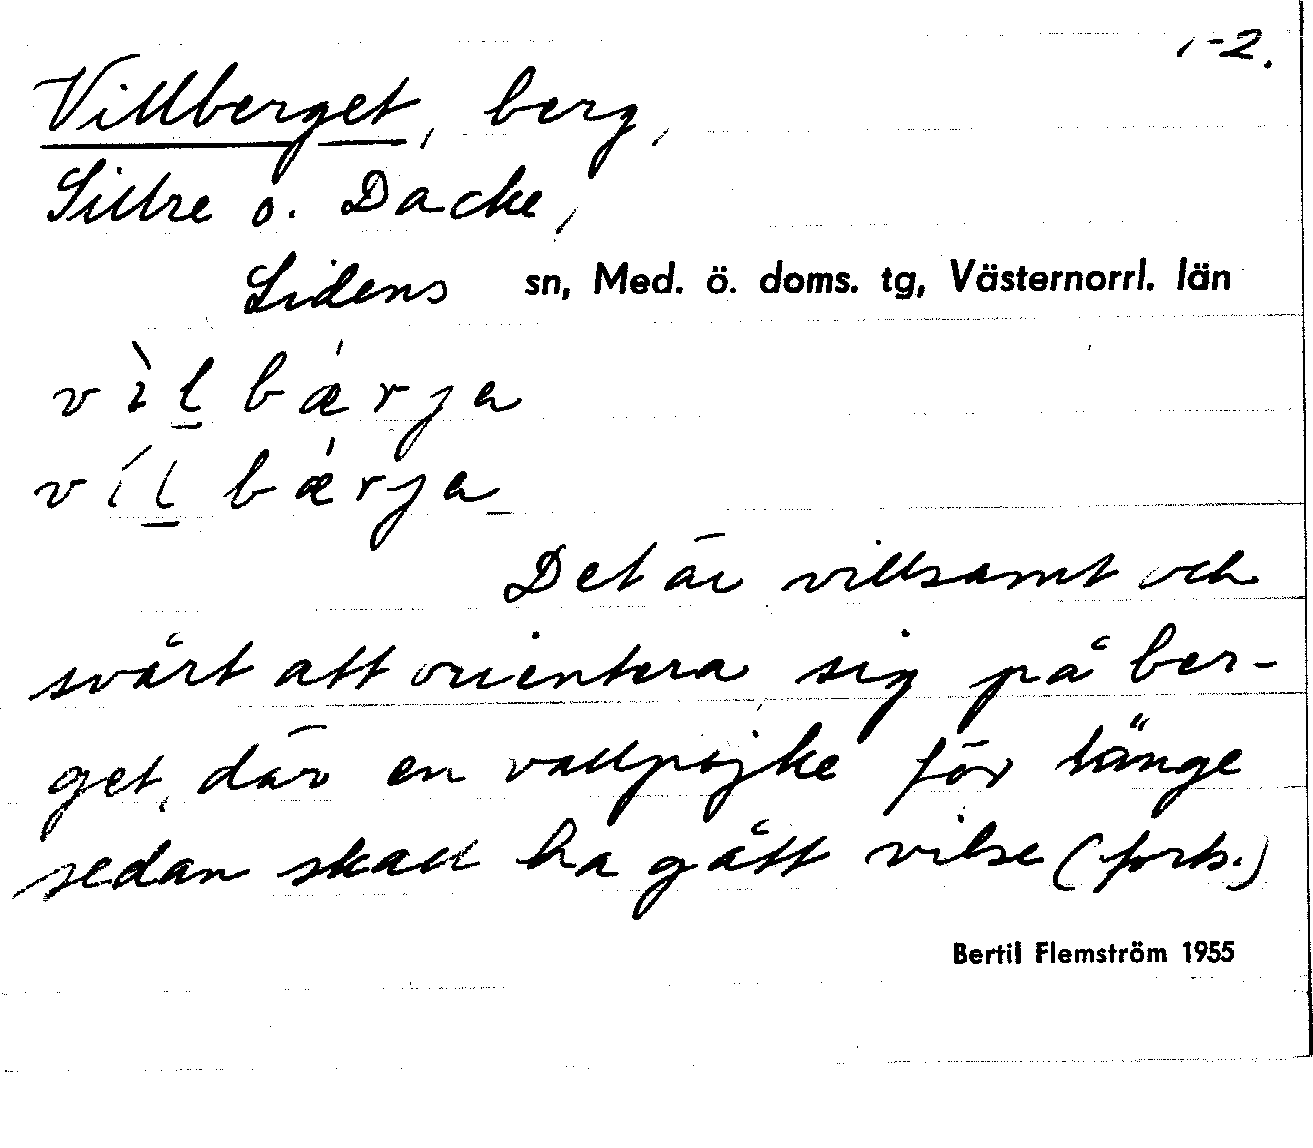 1-2.
Villberget, berg,
Sillre o. Dacke,
Lidens sn, Med. ö. doms. tg, Västernorrl. län
vìl bǽrja
víl bǽrja
Det är villsamt och
svårt att orientera sig på ber-
get, där en vallpojke för länge
sedan skall ha gått vilse (forts.)
Bertil Flemström 1955